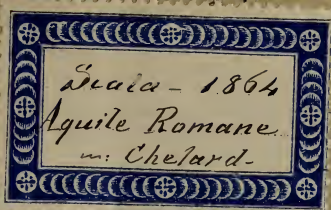 Scala - 1864
Aquile Romane
m: Chelard-